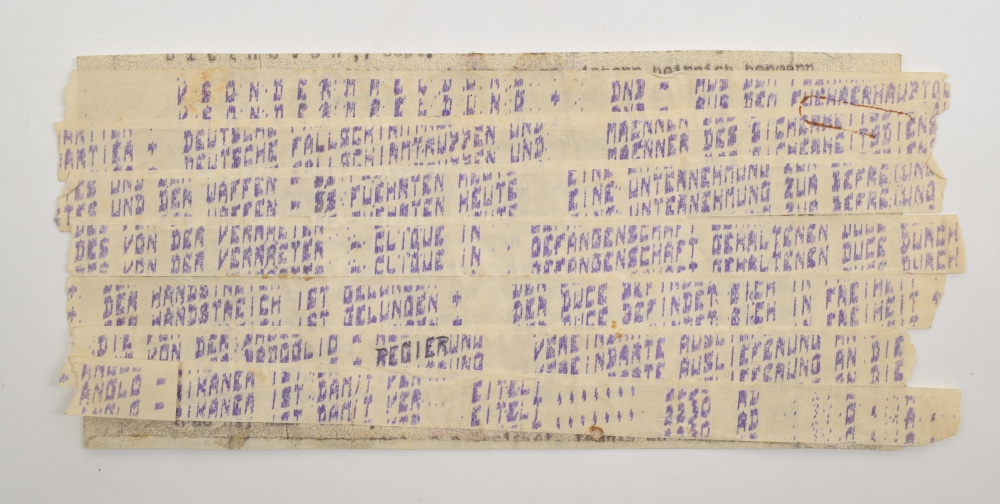 johann heinrich hermann
VSONDERMELDUNG + DNB = AUS DEM FUEHRERHAUPTQU
ARTIER + DEUTSCHE FALLSCHIRMTRUPPEN UND MAENNER DES SICHERHEITSDIENS
TES UND DER WAFFEN = SS FUEHRTEN HEUTE EINE UNTERNEHMUNG ZUR BEFREIUNG
DES VON DER VERRAETER = CLIQUE IN GEFANGENSCHAFT GEHALTENEN DUCE DURCH
+ DER HANDSTREICH IST GELUNGEN + DER DUCE BEFINDET SICH IN FREIHEIT +
DIE VON DER BADOGLIO = REGIERUNG VEREINBARTE AUSLIEFERUNG AN DIE
ANGLO = IKANER IST DAMIT VER EITELT